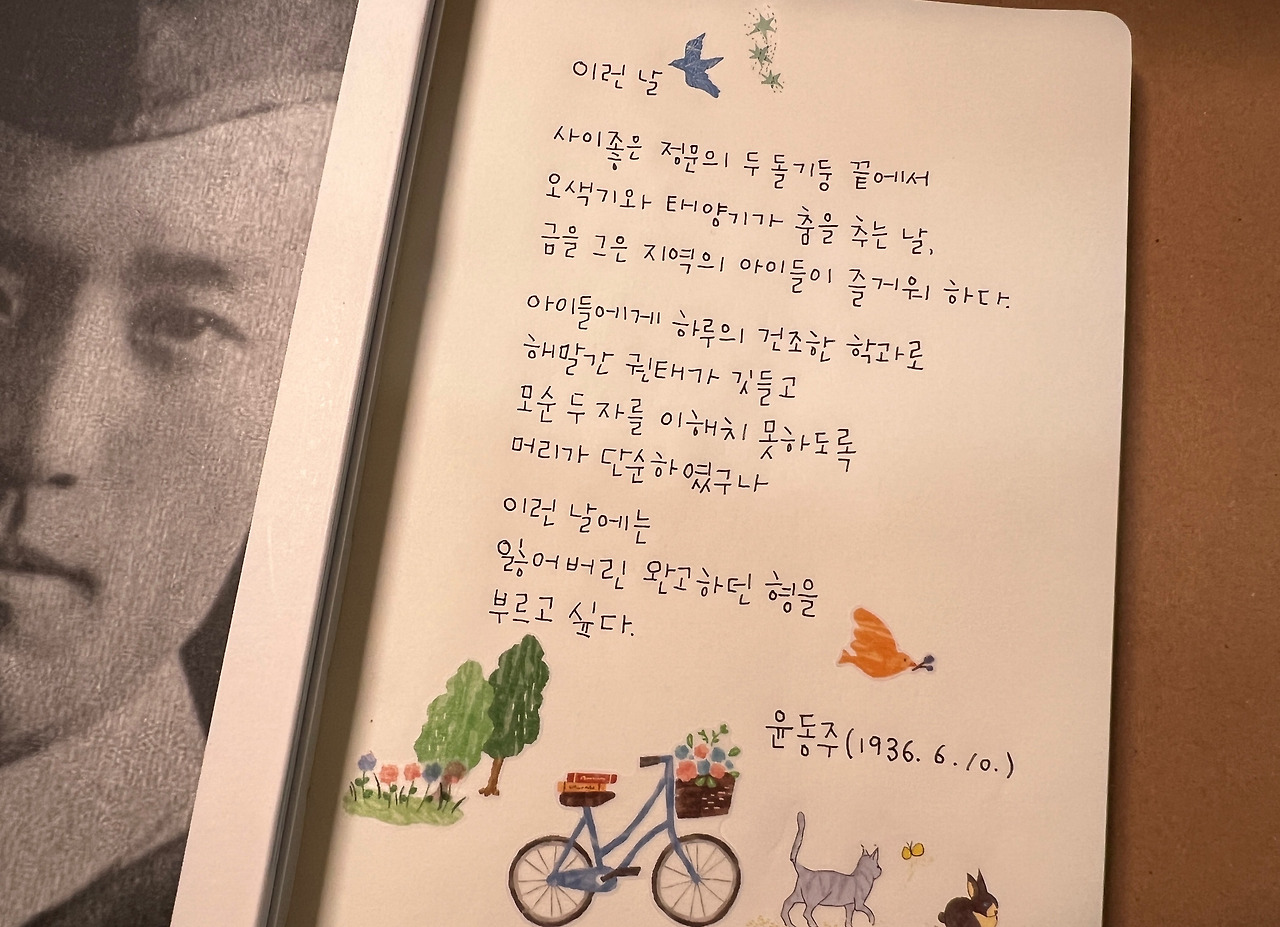 이런 날
사이좋은 정문의 두 돌기둥 끝에서
오색기와 태양기가 춤을 추는 날,
금을 그은 지역의 아이들이 즐거워 하다.
아이들에게 하루의 건조한 학과로
해말간 권태가 깃들고
모순 두 자를 이해치 못하도록
머리가 단순하였구나
이런 날에는
잃어버린 완고하던 형을
부르고 싶다.
윤동주(1936. 6. 10.)